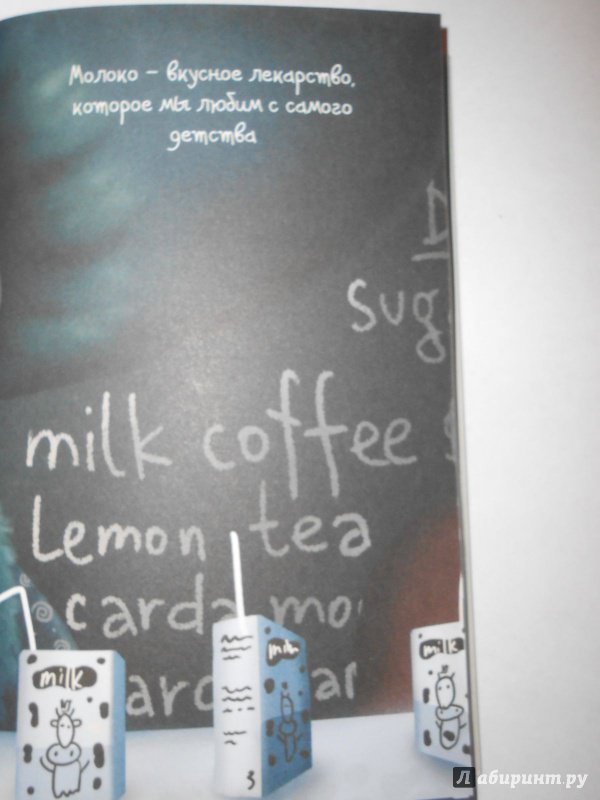 Молоко – вкусное лекарство,
которое мы любим с самого
детства
sug
milk coffee
Lemon tea
milk
milk
milk
Лабиринт.ру